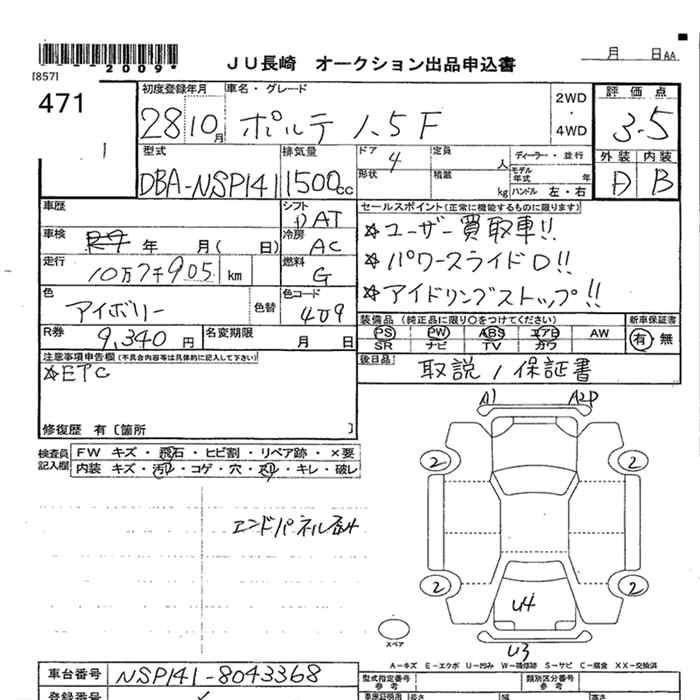 月 日AA
2009*
[857]
JU長崎 オークション出品申込書
471
初度登録年月 車名・グレード
28 10月 ポルテ 1.5F
2WD
・
4WD
評価点
3.5
外装 内装
D B
型式 排気量 ドア 定員 人 ディーラー・並行
DBA-NSP141 1500cc 4
形状 積載 kg モデル年式 年
ハンドル 左・右
車歴 シフト
DAT
セールスポイント(正常に機能するものに限ります)
☆ユーザー買取車!!
☆パワースライドD!!
☆アイドリングストップ!!
車検 R7年 月( 日) 冷房 AC
走行 10万7千905 km 燃料 G
色 アイボリー 色替 色コード 4U9
装備品(純正品に限り○をつけてください) 新車保証書
PS PW ABS エアB AW 有・無
SR ナビ TV カワ
R券 9,340円 名変期限 月 日
注意事項申告欄(不具合内容等は具体的に記入して下さい)
☆ETC
後日品 取説/保証書
修復歴 有〔箇所 〕
検査員記入欄 FW キズ・飛石・ヒビ割・リペア跡・×要
内装 キズ・汚れ・コゲ・穴・スリ・キレ・破レ
A1 A2P
2 2
エンドパネル歪み
2 2
U4
スペア
U3
A-キズ E-エクボ U-凹み W-補修跡 S-サビ C-腐食 XX-交換済
車台番号 NSP141-8043368
型式指定番号 参考 類別区分番号 参考
登録番号
車庫証明用 長さ 幅 高さ